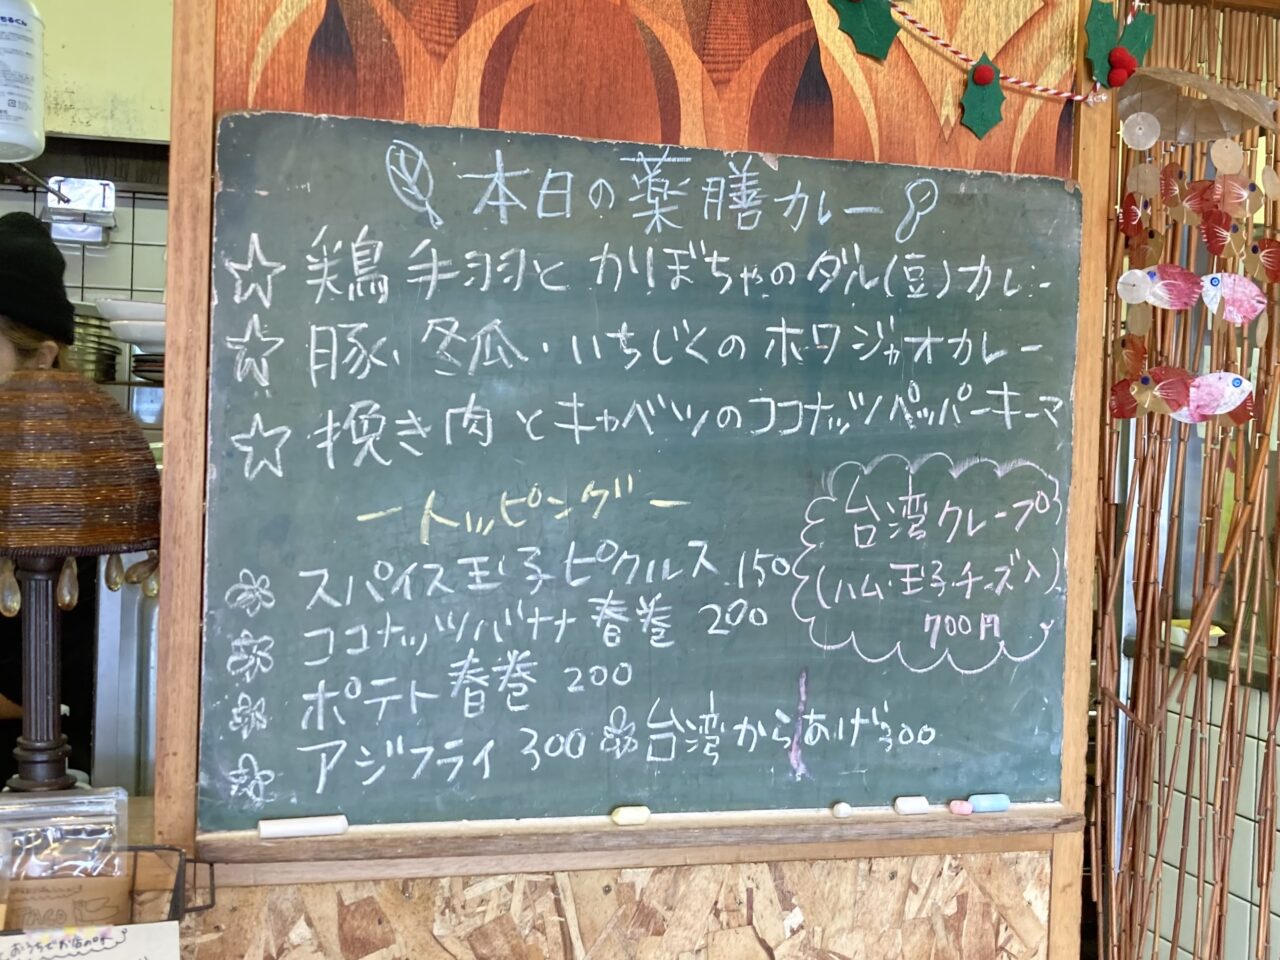 本日の薬膳カレー
☆鶏手羽とかぼちゃのダル(豆)カレー
☆豚、冬瓜・いちじくのホワジャオカレー
☆挽き肉とキャベツのココナッツペッパーキーマ
ートッピングー
スパイス玉子ピクルス 150
ココナッツバナナ春巻 200
ポテト春巻 200
アジフライ 300
台湾からあげ 300
台湾クレープ
(ハム・玉子・チーズ入)
700円
TACO
おうちでお店の味